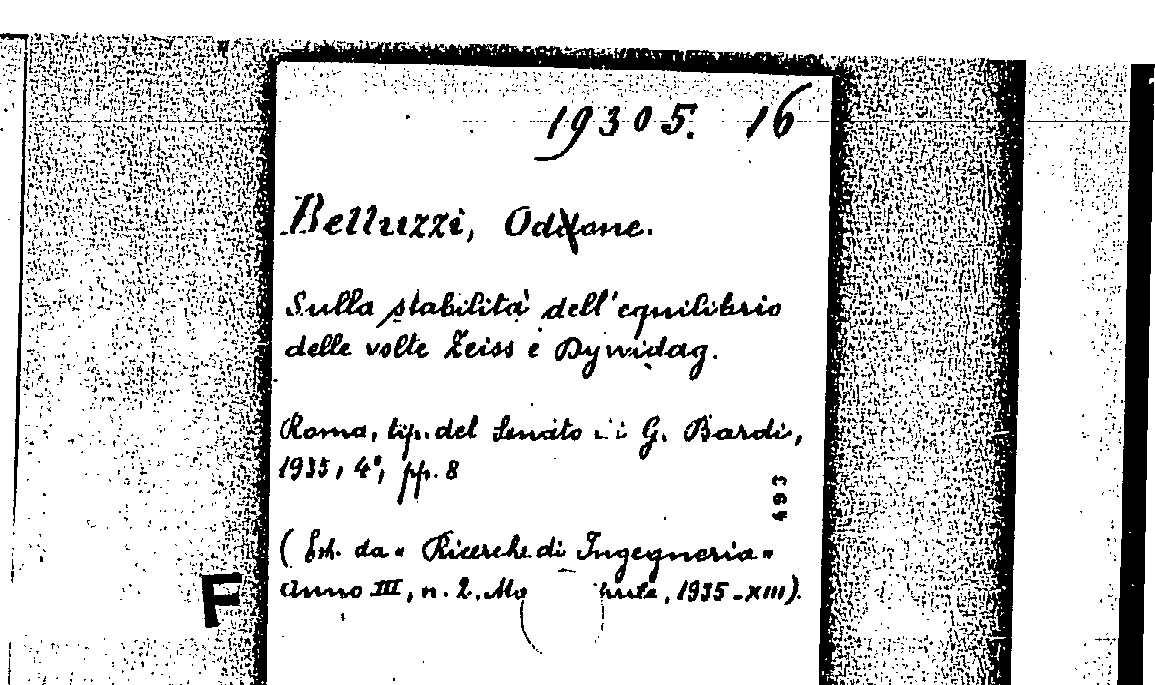 19305. 16
Belluzzi, Odone.
Sulla stabilità dell'equilibrio
delle volte Zeiss e Dywidag.
Roma, tip. del Senato di G. Bardi,
1935, 4°, pp. 8
493
( Estr. da « Ricerche di Ingegneria »
Anno III, n. 2. 1935-XIII).
F